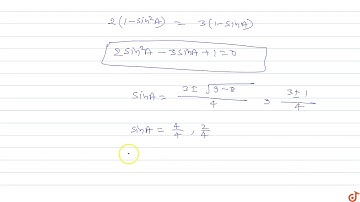 2(1-sin²A) = 3(1-sinA)
2sin²A - 3sinA + 1 = 0
sinA = 3 ± √9-8 / 4 , 3 ± 1 / 4
sinA = 4/4 , 2/4